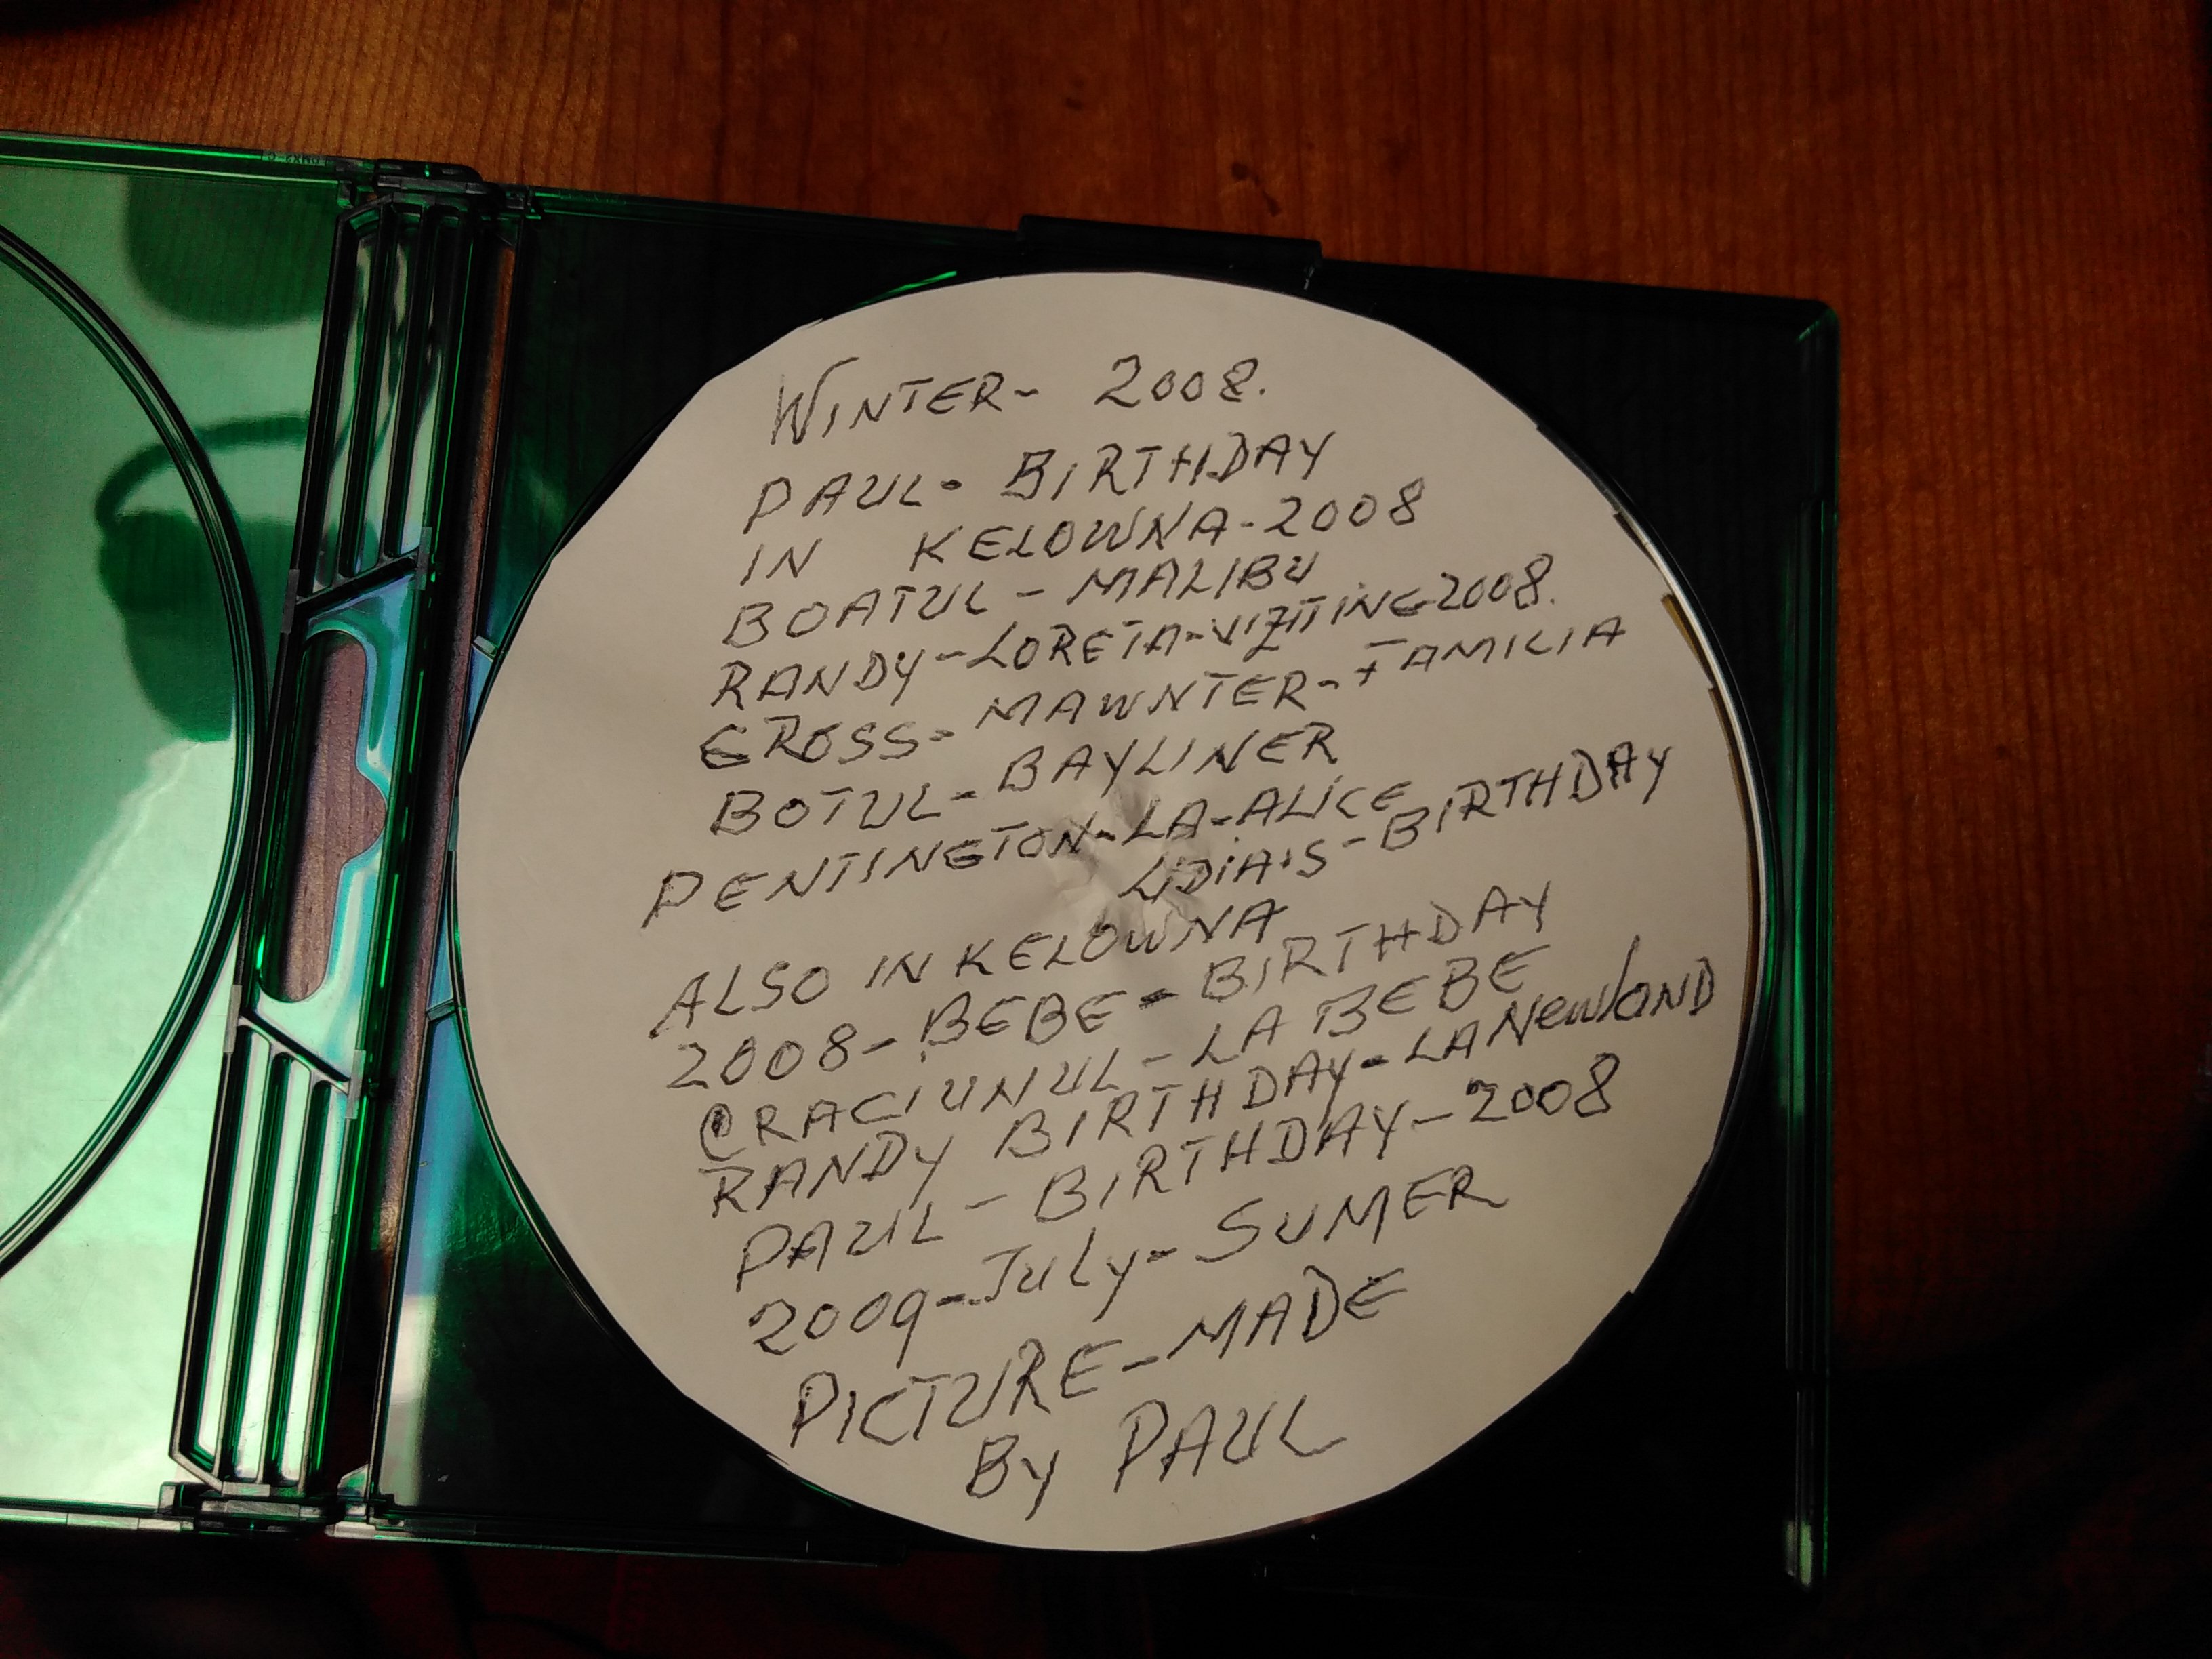 WINTER- 2008.
PAUL- BIRTHDAY
IN KELOWNA-2008
BOATUL - MALIBU
RANDY-LORETA-VIZITING-2008.
GROSS- MAWNTER-FAMILIA
BOTUL- BAYLINER
PENTINGTON-LA-ALICE
LIDIA'S-BIRTHDAY
ALSO IN KELOWNA
2008- BEBE - BIRTHDAY
CRACIUNUL - LA BEBE
RANDY BIRTHDAY- LA Newland
PAUL - BIRTHDAY-2008
2009-July- SUMER
PICTURE-MADE
By PAUL